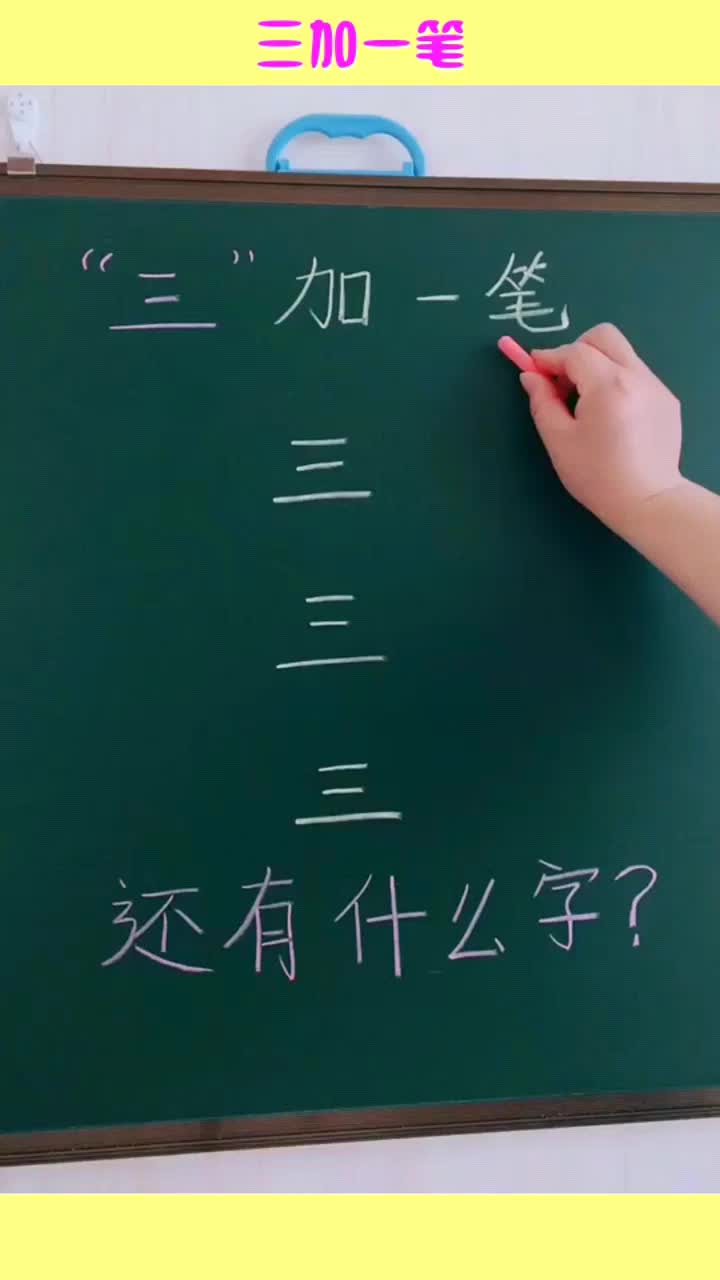 三加一笔
“三”加一笔
三
三
三
还有什么字?